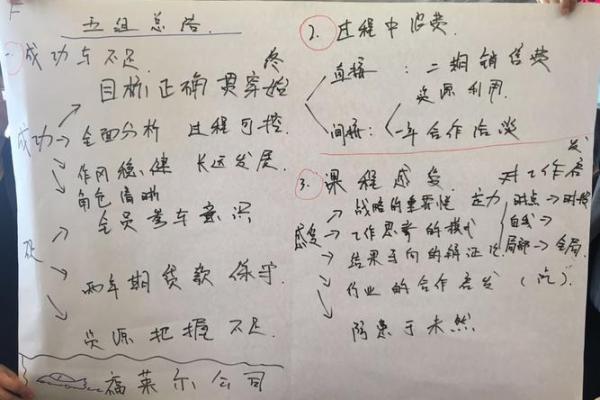 五组总结
一成功与不足
目标正确贯穿始终
成功→全面分析 过程可控.
作风稳健 长远发展.
角色清晰
全员参与意识
两年期贷款保守.
资源把握不足.
福莱尔公司
2. 过程中浪费.
直接:二期销售费
资源利用.
间接:一年合作洽谈
3. 课程感受.
对工作启发
战略的重要性
时点→时段
感受→工作思考的模式
自我→
结果导向的辩证论
局部→全局.
行业的合作启发
防患于未然